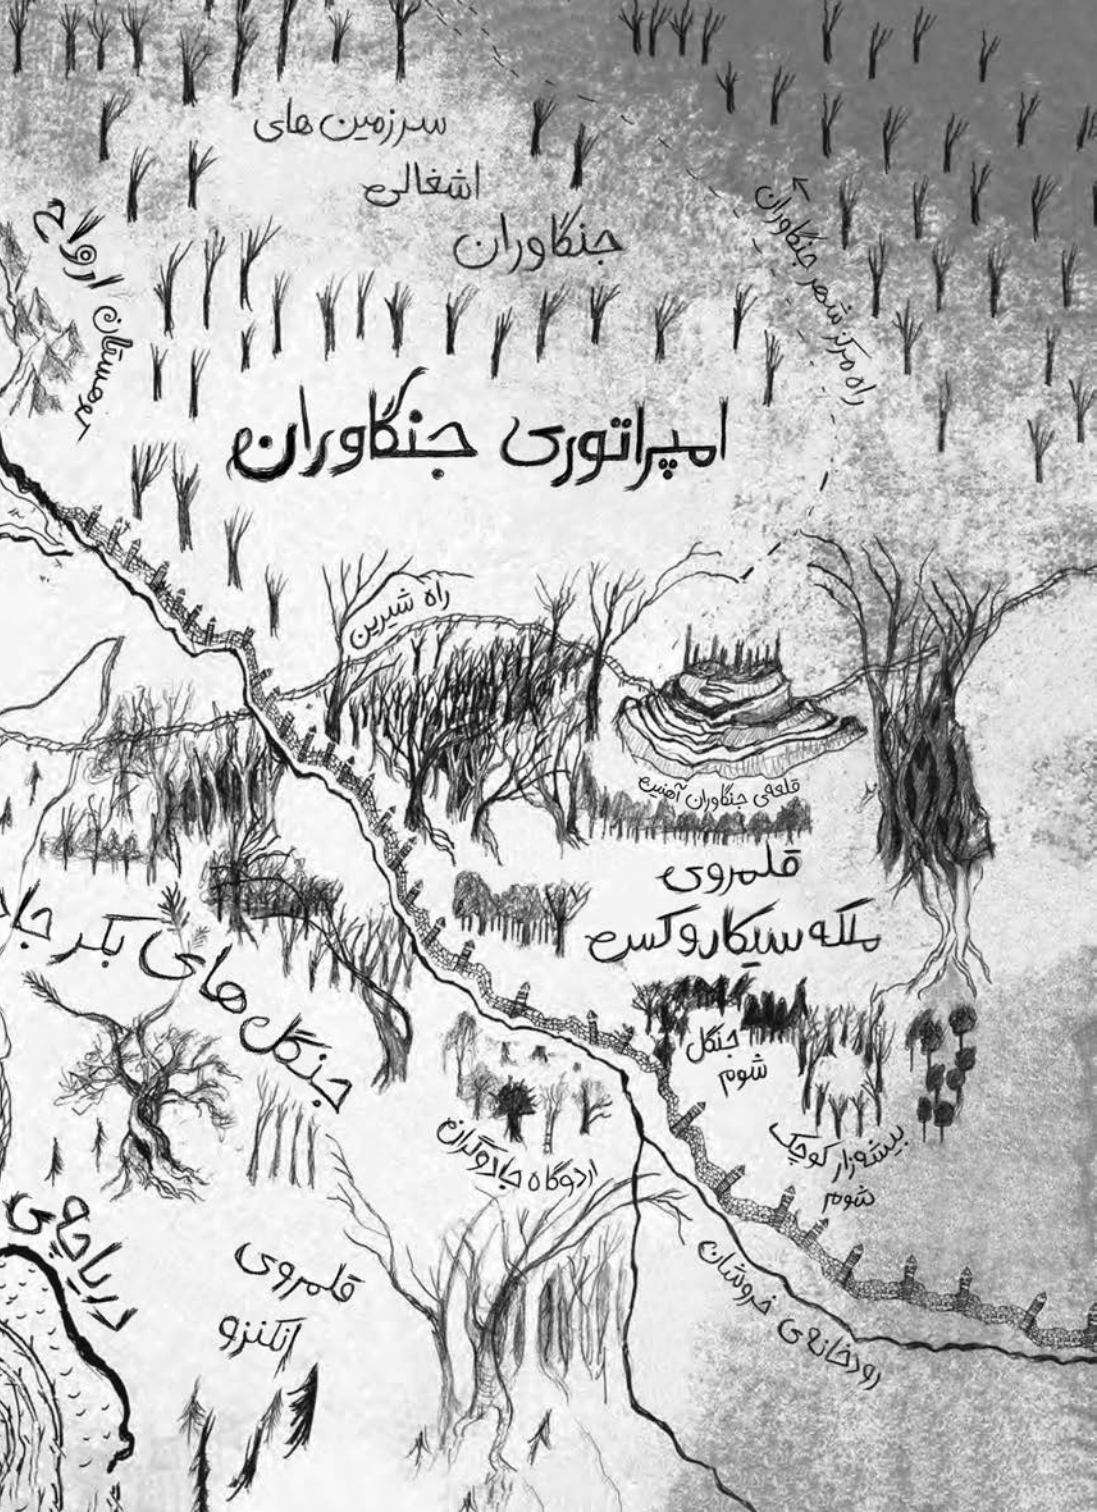 سرزمین های
اشغالی
جنگاوران
راه مرکز شهر جنگاوران
ارواح
امپراتوری جنگاوران
راه شیرین
قلعه‌ی جنگاوران آهنین
قلمروی
ملکه سیکاروکس
جنگل های بکر
جنگل
شوم
بیشه‌زار کوچک
شوم
اردوگاه جادوگران
دریاچه‌ی
قلمروی
انکنزو
رودخانه‌ی خروشان